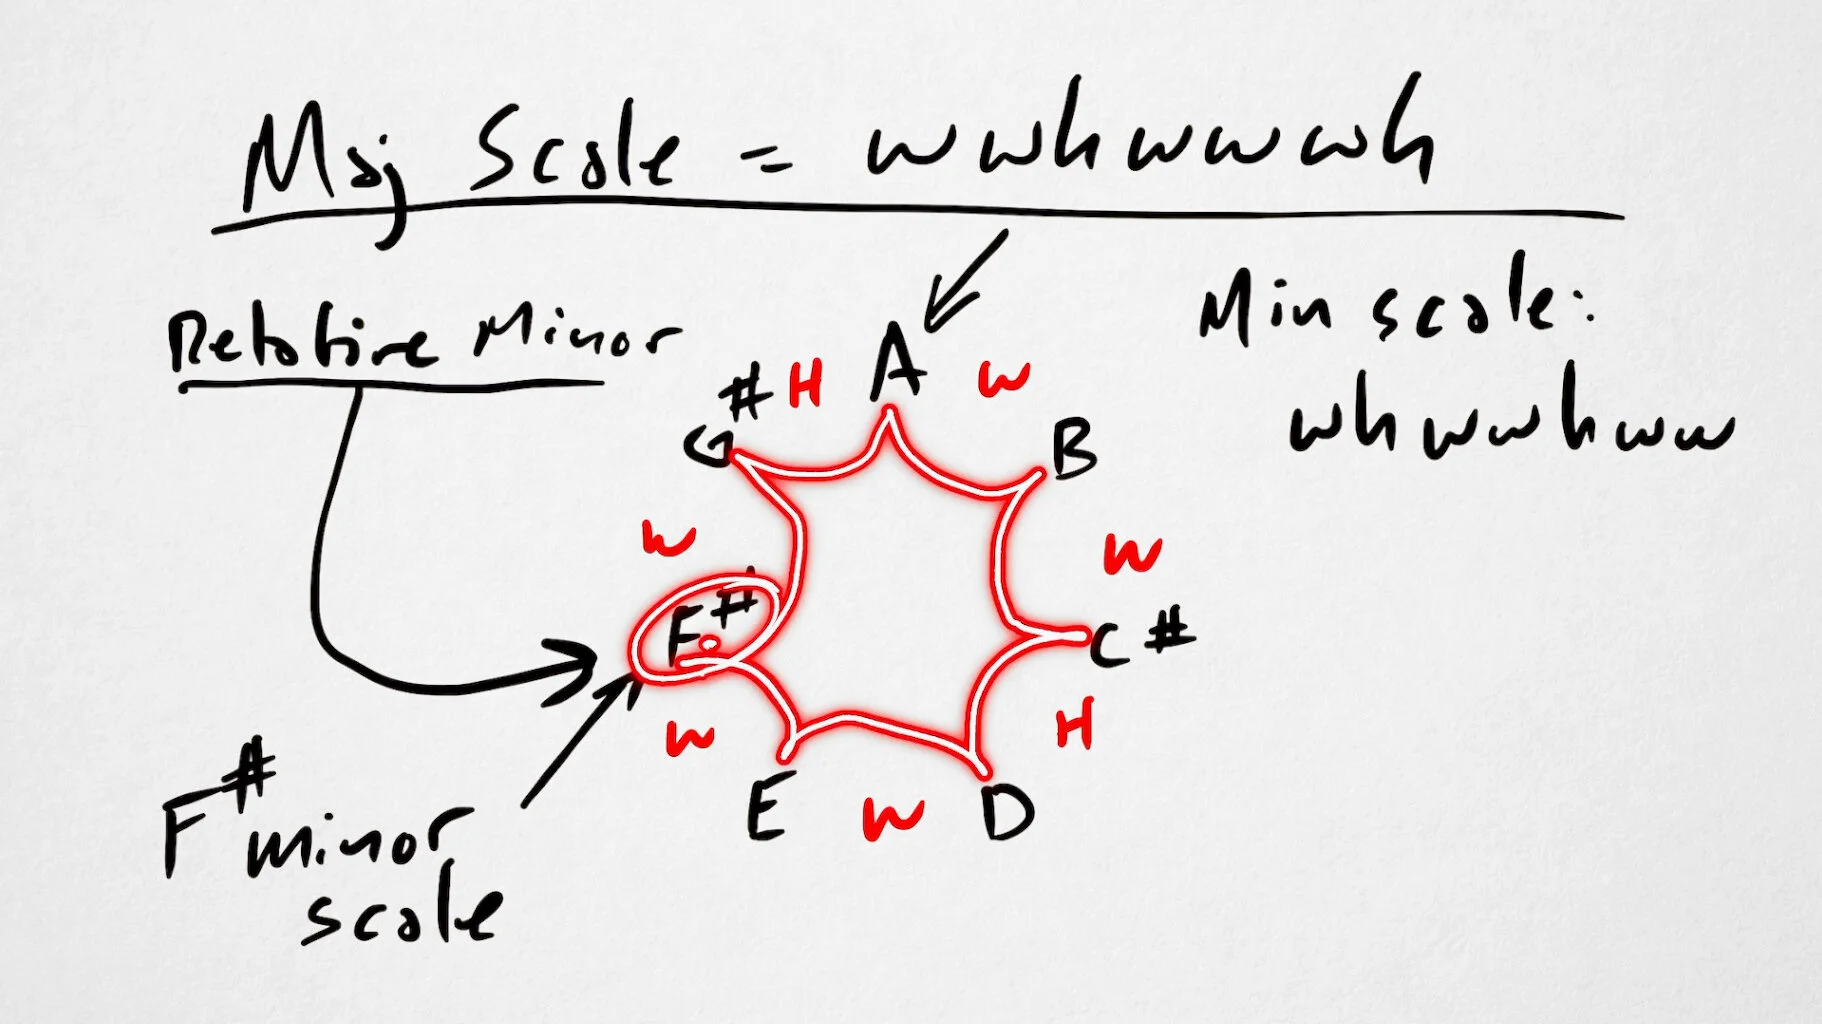 Maj Scale = wwhwwwh
Relative Minor
Min scale:
whwwhww
A
B
C#
D
E
F#
G#
W
W
H
W
W
W
H
F# minor
scale